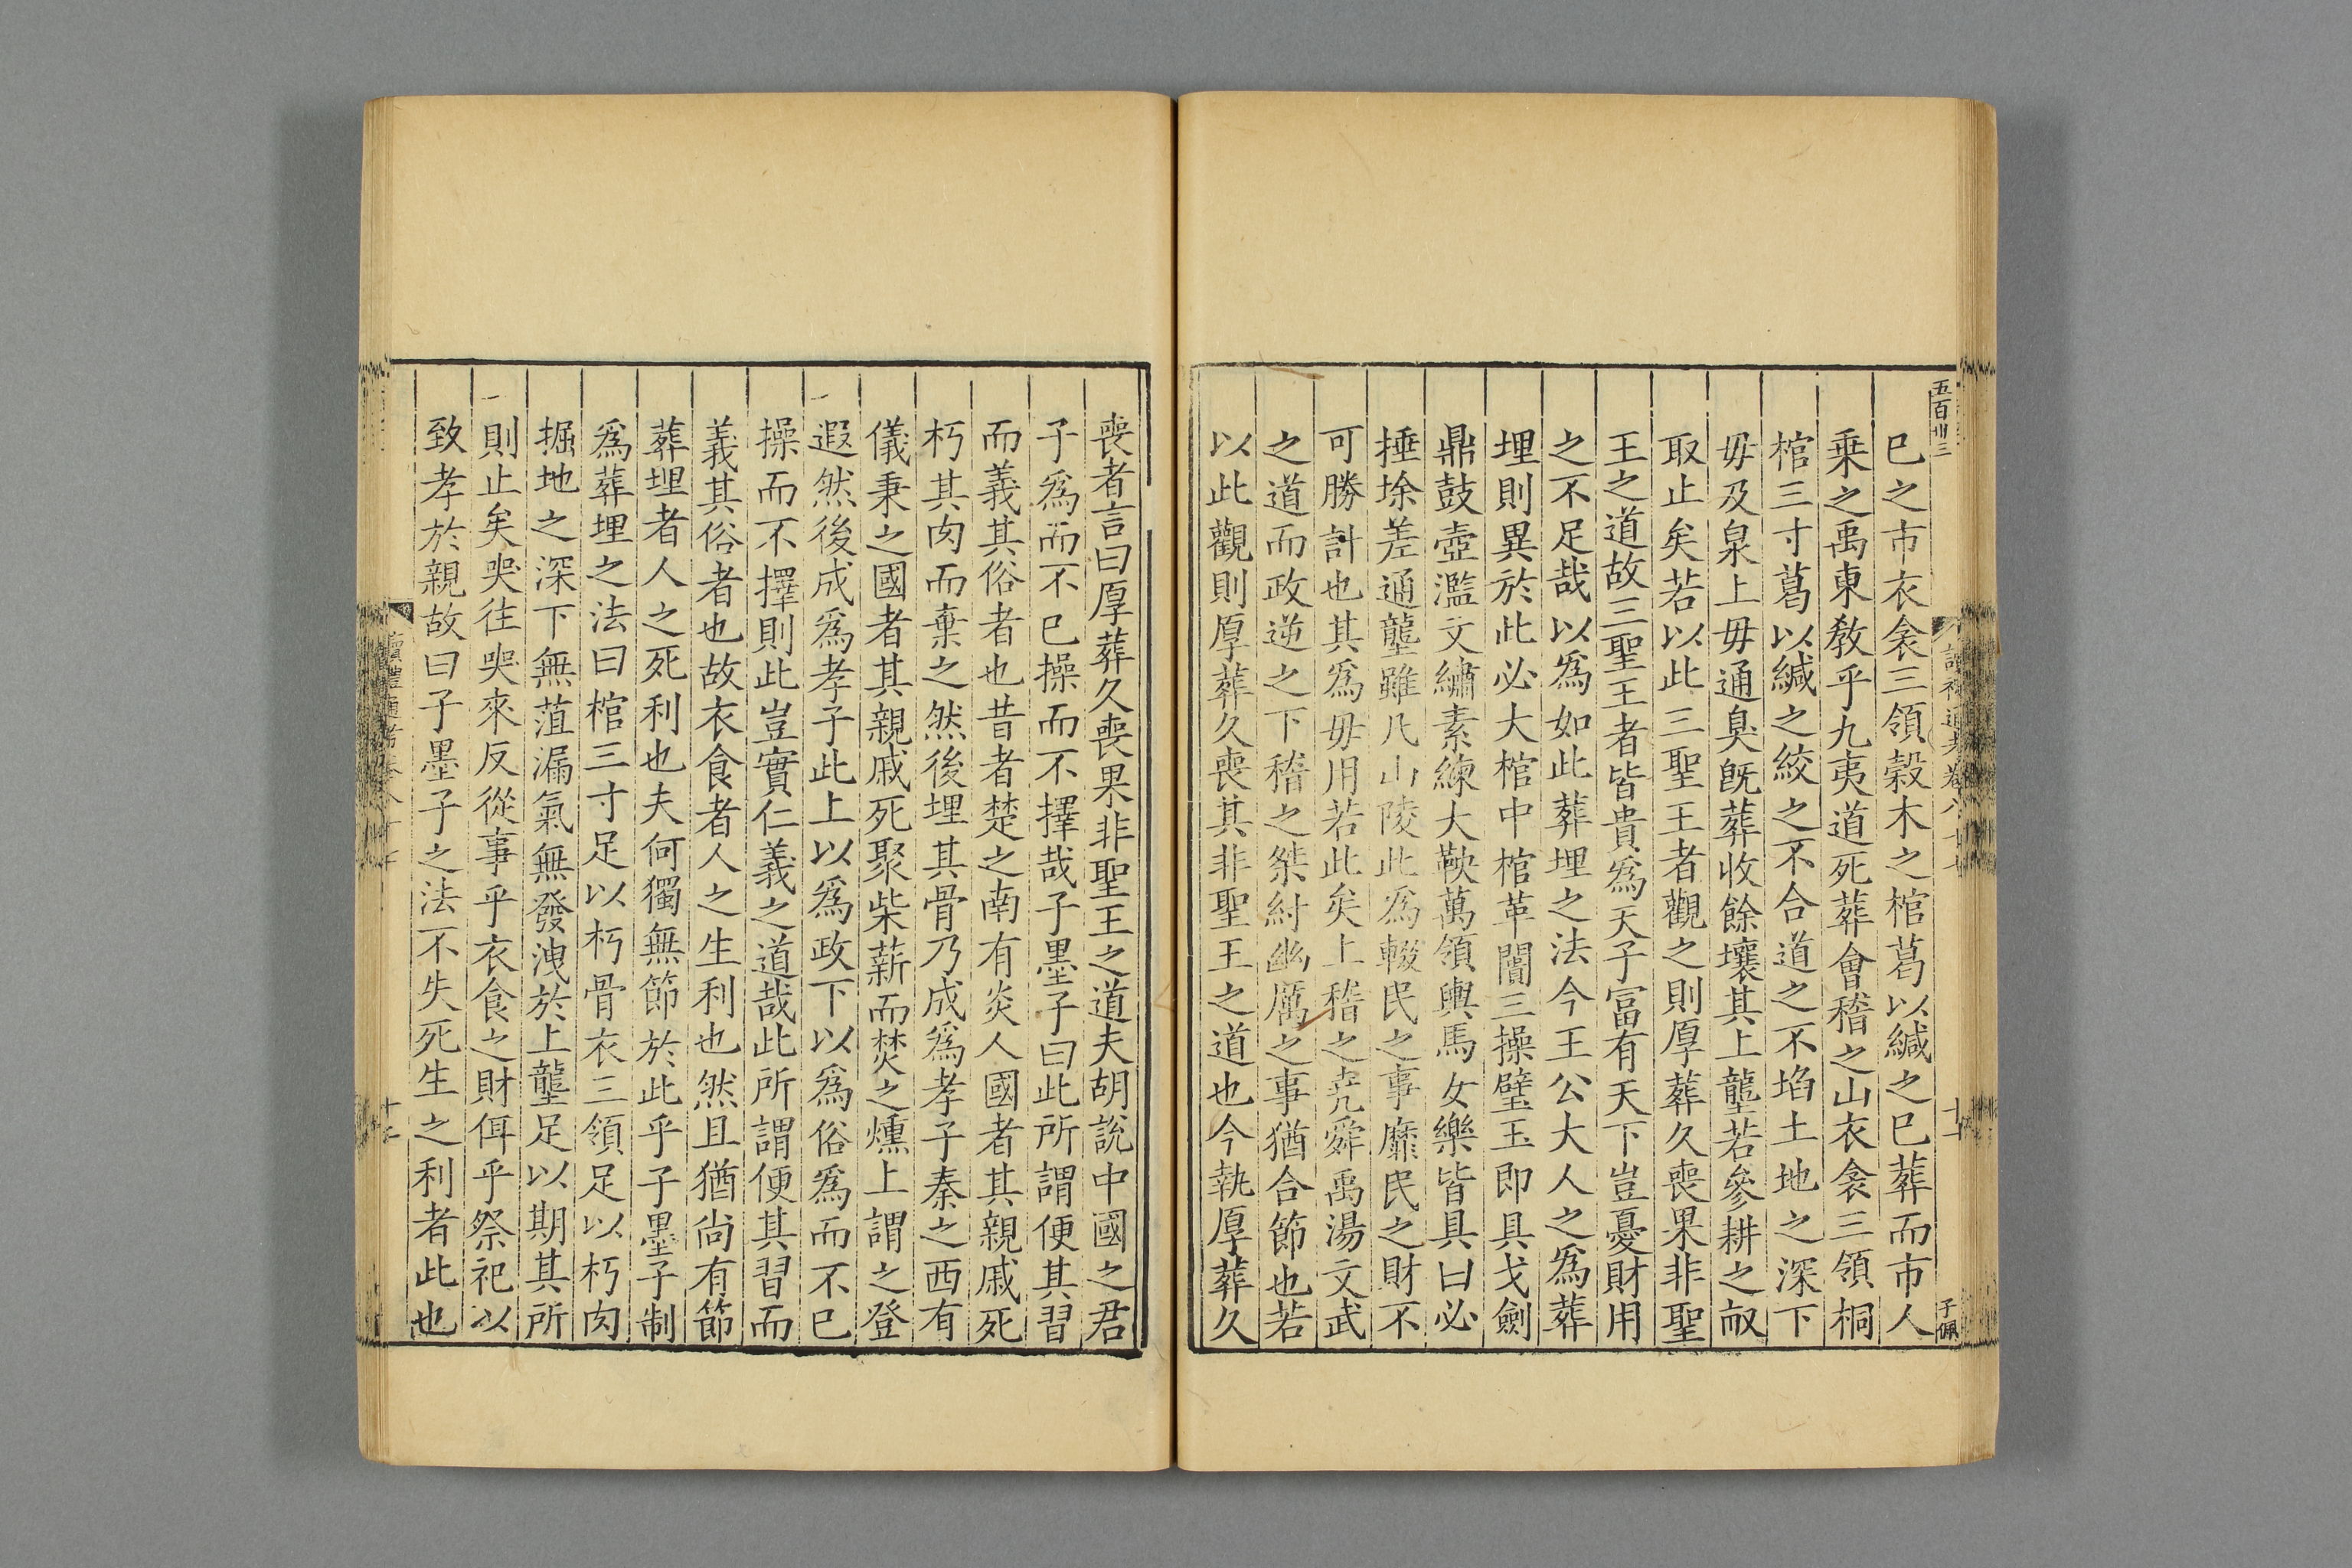 五百卅三
子佩
已之市衣衾三領榖木之棺葛以緘之已葬而市人
乗之禹東教乎九夷道死葬會稽之山衣衾三領桐
棺三寸葛以緘之絞之不合道之不埳土地之深下
毋及泉上毋通臭旣葬收餘壤其上壟若參耕之㽗
取止矣若以此三聖王者觀之則厚葬久喪果非聖
王之道故三聖王者皆貴爲天子富有天下豈憂財用
之不足哉以爲如此葬埋之法今王公大人之爲葬
埋則異於此必大棺中棺革闠三操璧玉即具戈劍
鼎鼓壺濫文繡素練大鞅萬領輿馬女樂皆具曰必
捶垛差通壟雖凡山陵此爲輟民之事靡民之財不
可勝計也其爲毋用若此矣上稽之尭舜禹湯文武
之道而政逆之下稽之桀紂幽厲之事猶合節也若
以此觀則厚葬久喪其非聖王之道也今執厚葬久
喪者言曰厚葬久喪果非聖王之道夫胡説中國之君
子爲而不已操而不擇哉子墨子曰此所謂便其習
而義其俗者也昔者楚之南有炎人國者其親戚死
朽其肉而棄之然後埋其骨乃成爲孝子秦之西有
儀秉之國者其親戚死聚柴薪而焚之燻上謂之登
遐然後成爲孝子此上以爲政下以爲俗爲而不已
操而不擇則此豈實仁義之道哉此所謂便其習而
義其俗者也故衣食者人之生利也然且猶尚有節
葬埋者人之死利也夫何獨無節於此乎子墨子制
爲葬埋之法曰棺三寸足以朽骨衣三領足以朽肉
掘地之深下無菹漏氣無發洩於上壟足以期其所
則止矣哭往哭來反從事乎衣食之財佴乎祭祀以
致孝於親故曰子墨子之法不失死生之利者此也